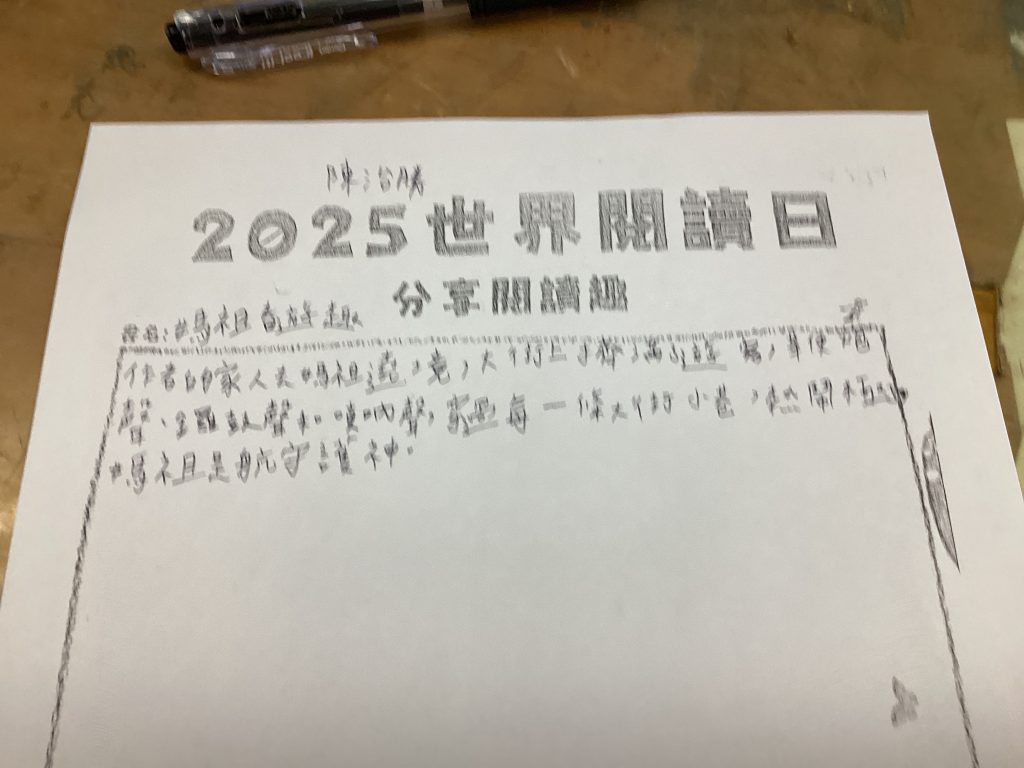 陳治勝
2025世界閱讀日
分享閱讀趣
書名:媽祖有遊趣
作者的家人去媽祖遶,竟,大街上了擠滿
聲、鑼鼓聲和嗩吶聲,每一條大街小巷,熱鬧極
媽祖是航守護神.